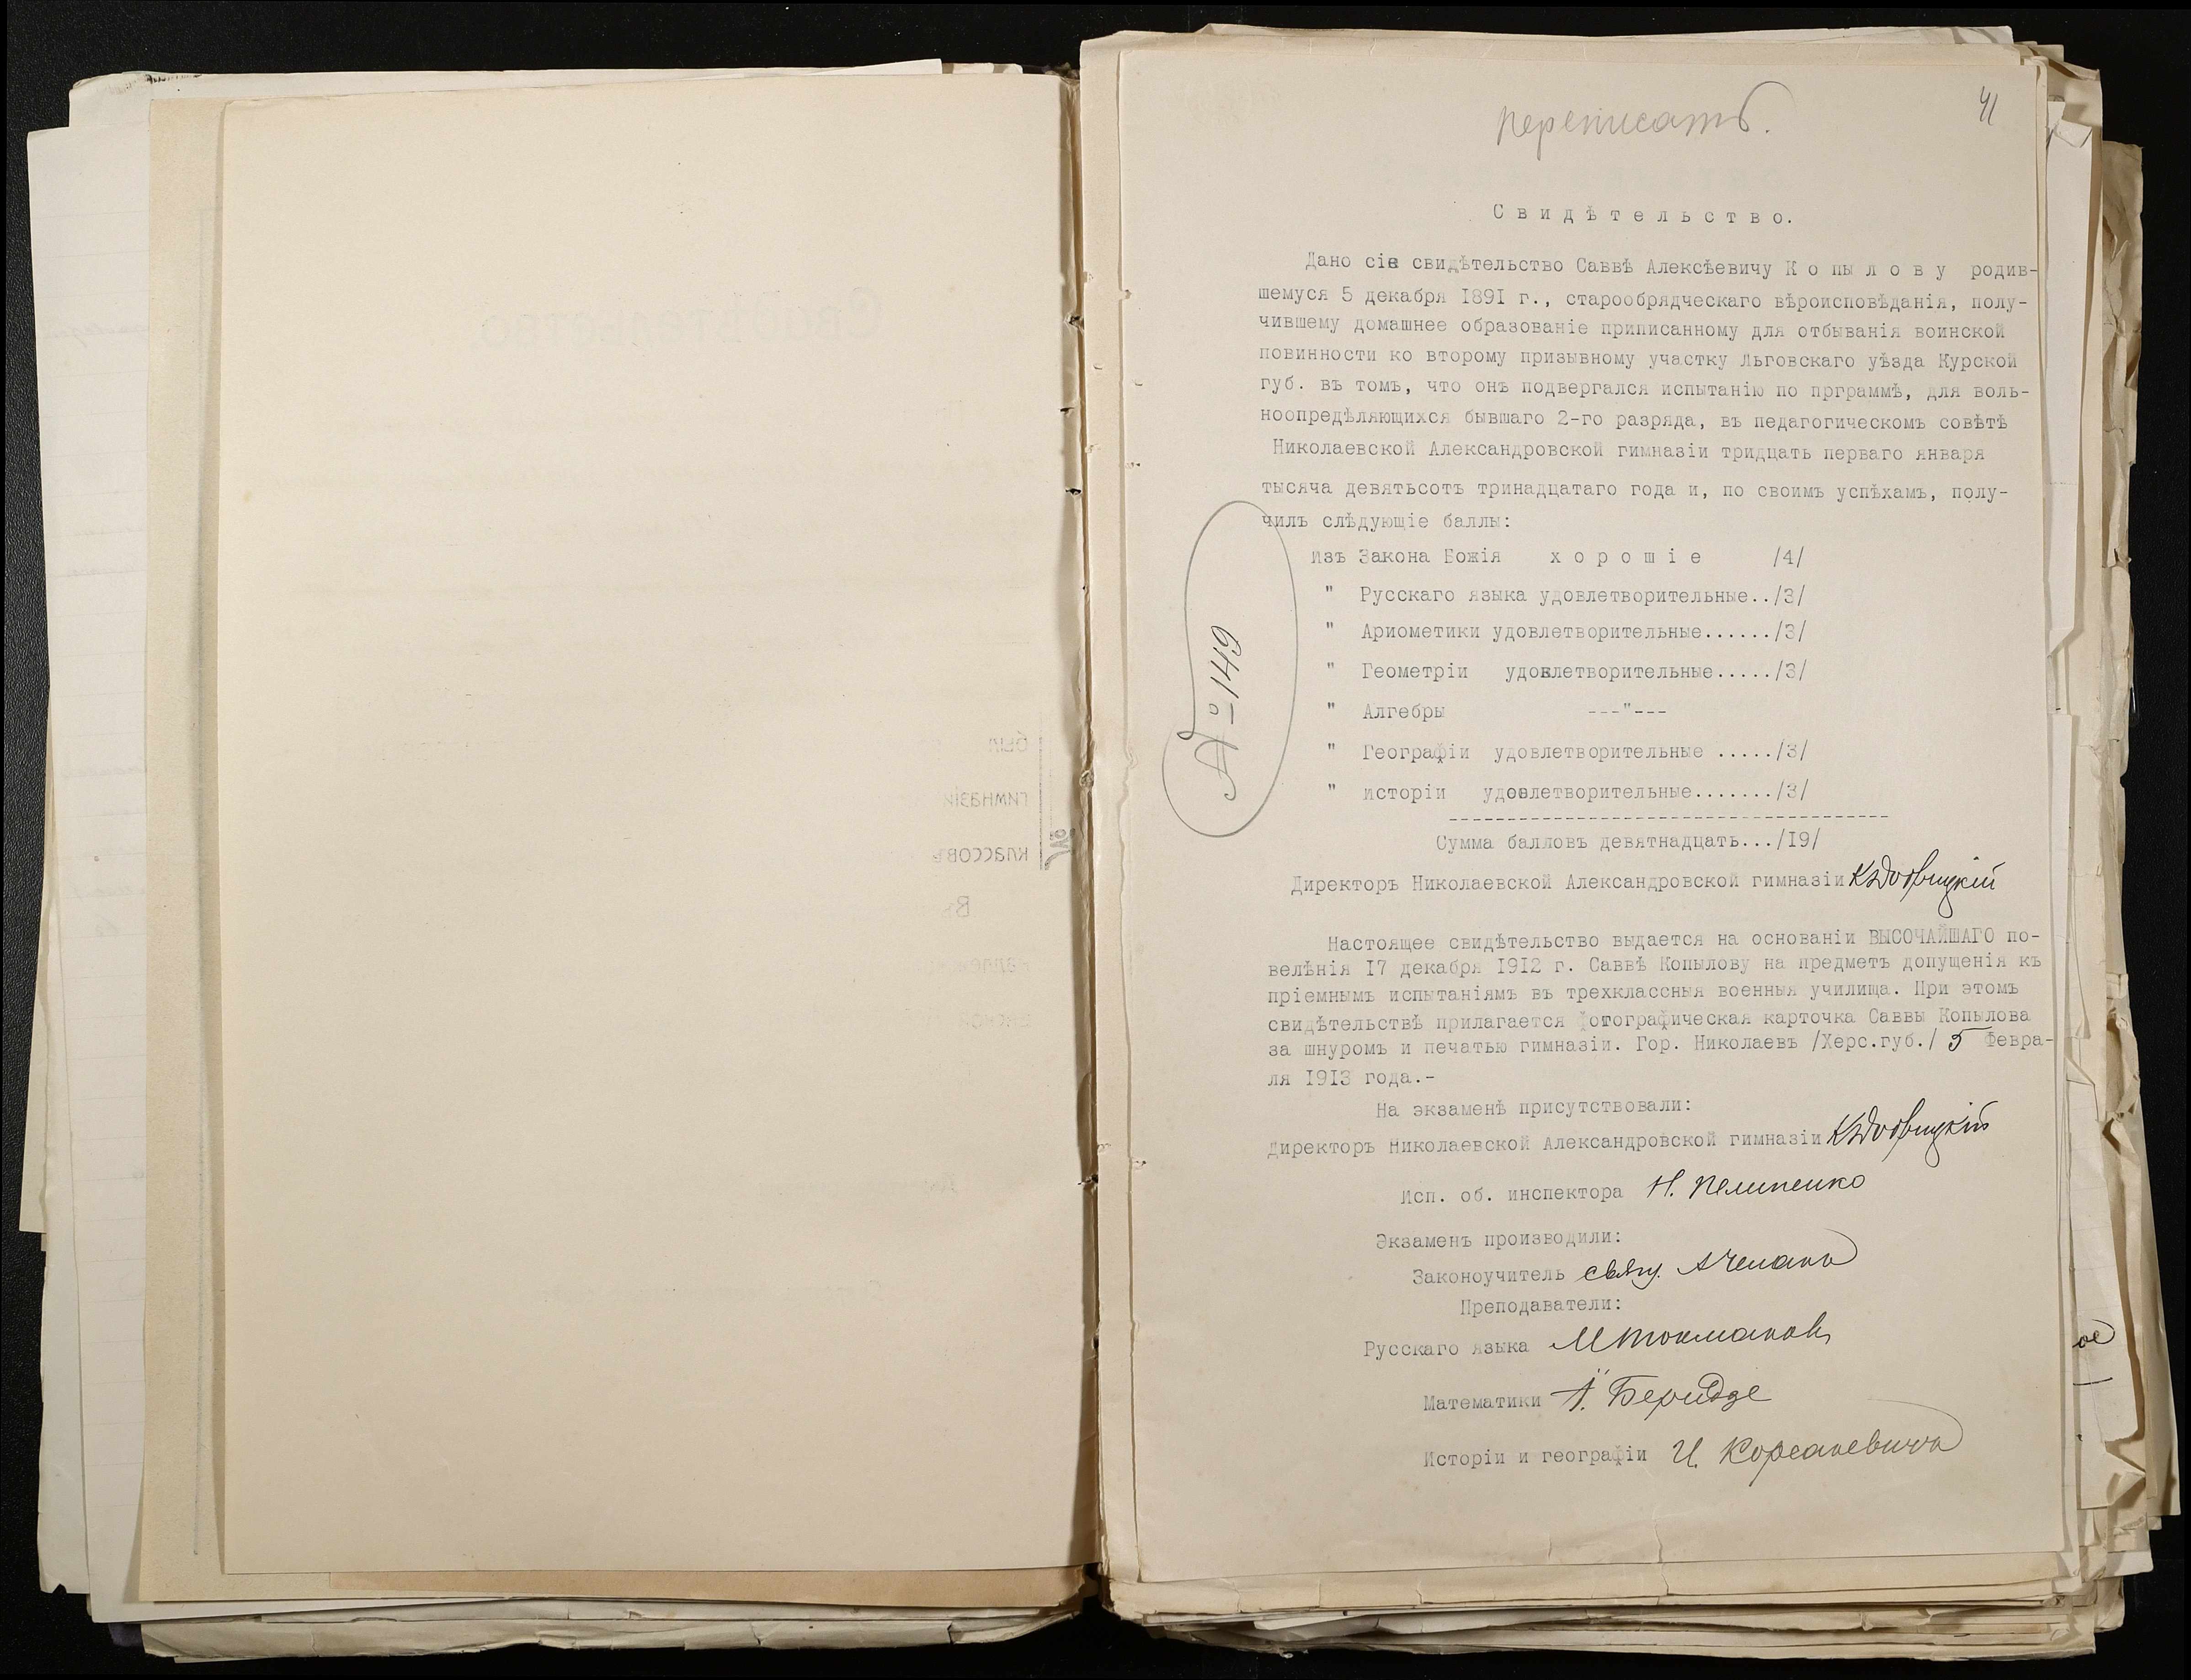 переписать.
41
Свидѣтельство.
Дано сіе свидѣтельство Саввѣ Алексѣевичу Копылову родив-
шемуся 5 декабря 1891 г., старообрядческаго вѣроисповѣданія, полу-
чившему домашнее образованіе приписанному для отбыванія воинской
повинности ко второму призывному участку Льговскаго уѣзда Курской
губ. въ томъ, что онъ подвергался испытанію по прграммѣ, для воль-
ноопредѣляющихся бывшаго 2-го разряда, въ педагогическомъ совѣтѣ
Николаевской Александровской гимназіи тридцать перваго января
тысяча девятьсотъ тринадцатаго года и, по своимъ успѣхамъ, полу-
чилъ слѣдующіе баллы:
Изъ Закона Божія хорошіе /4/
" Русскаго языка удовлетворительные../3/
" Ариометики удовлетворительные....../3/
" Геометріи удовлетворительные...../3/
" Алгебры ---"---
" Географіи удовлетворительные ...../3/
" исторіи удовлетворительные......./3/
Сумма балловъ девятнадцать.../19/
№ 149
Директоръ Николаевской Александровской гимназіи
Настоящее свидѣтельство выдается на основаніи ВЫСОЧАЙШАГО по-
велѣнія 17 декабря 1912 г. Саввѣ Копылову на предметъ допущенія къ
пріемнымъ испытаніямъ въ трехклассныя военныя училища. При этомъ
свидѣтельствѣ прилагается фотографическая карточка Саввы Копылова
за шнуромъ и печатью гимназіи. Гор. Николаевъ /Херс.губ./ 5 Февра-
ля 1913 года.-
На экзаменѣ присутствовали:
Директоръ Николаевской Александровской гимназіи
Исп. об. инспектора Н. Пелипенко
Экзаменъ производили:
Законоучитель свящ.
Преподаватели:
Русскаго языка М Токмаковъ
Математики А. Беридзе
Исторіи и географіи И. Корсакевичъ